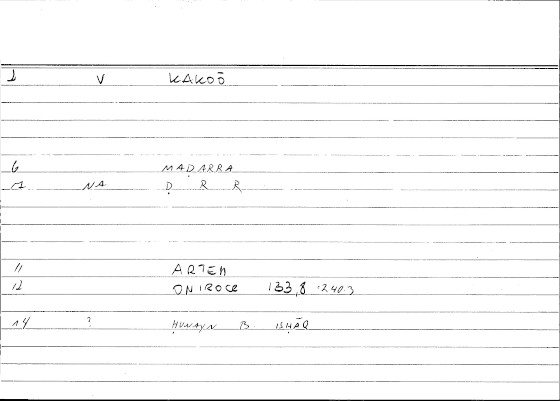 1 V KAKOŌ
6 MAḌARRA
NA Ḍ R R
11 ARTEM
12 ONIROCR 133,8 240.3
14 ? ḤUNAYN B ISḤĀQ